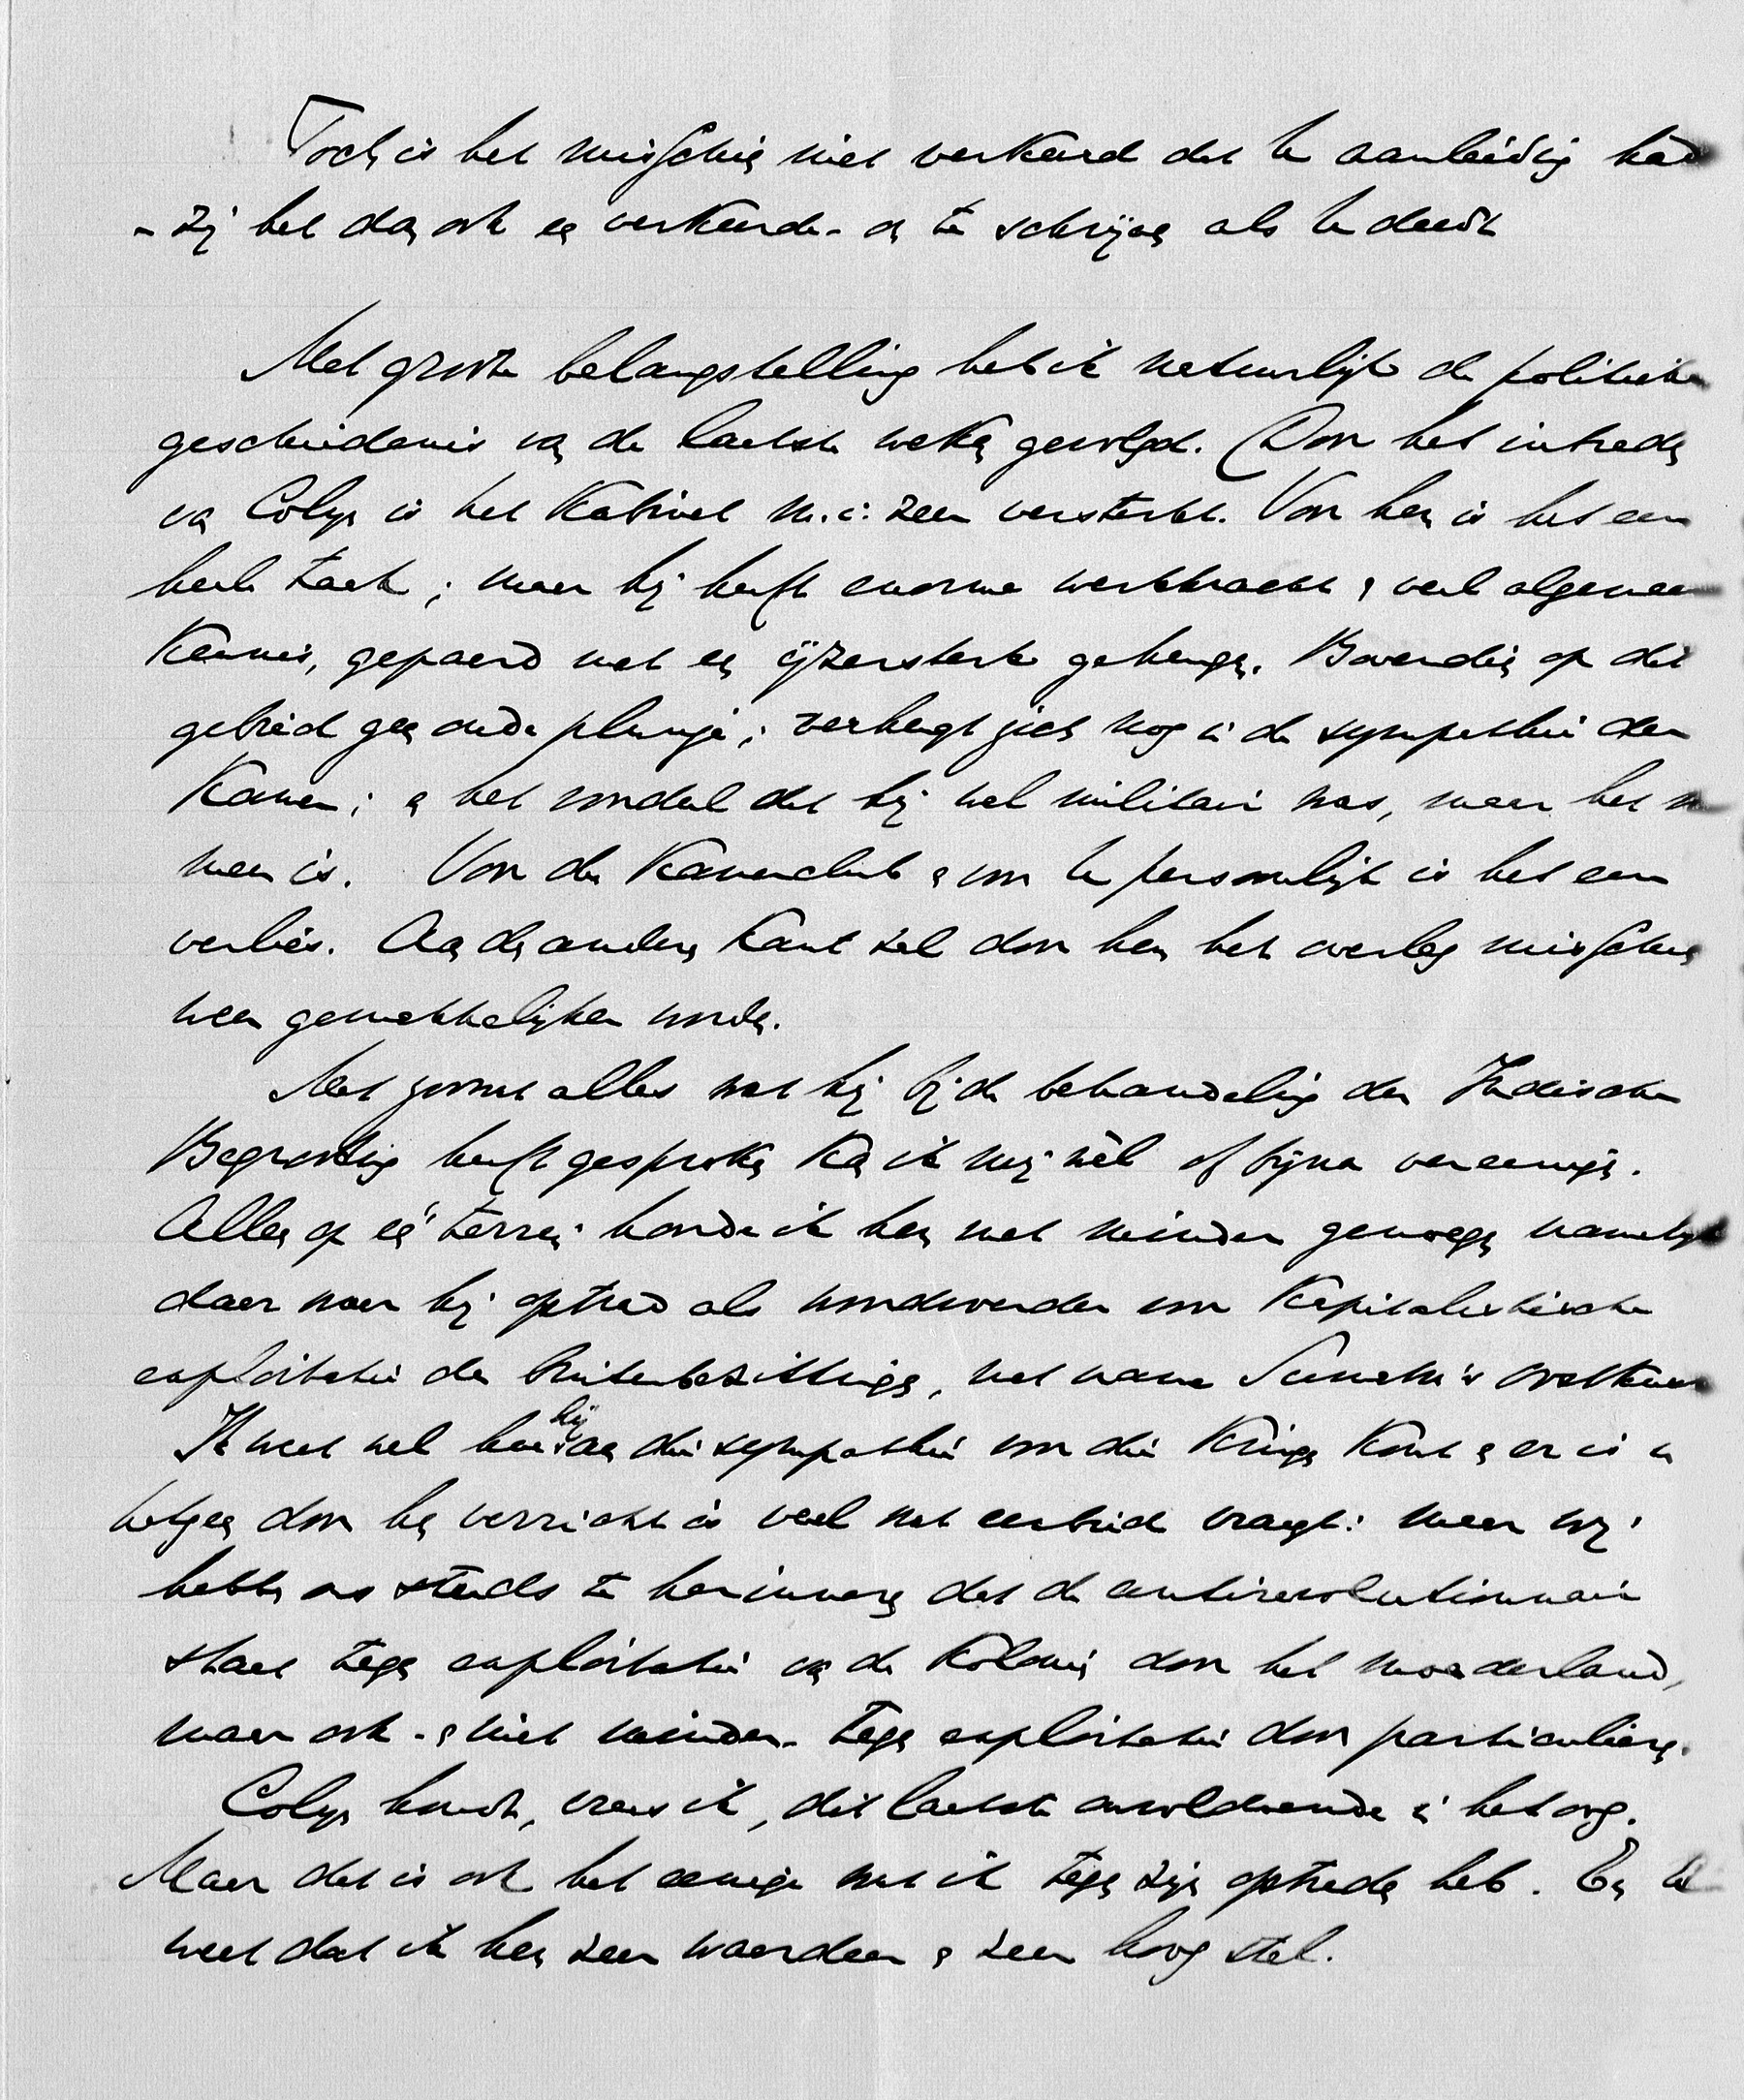 Toch is het misschien niet verkeerd dat U aanleiding had
- zij het dan ook een verkeerde - om te schrijven als U deedt
Met groote belangstelling heb ik natuurlijk de politieke
geschiedenis van de laatste weken gevolgd. Door het intreden
van Colijn is het Kabinet m.i. zeer versterkt. Voor hem is het een
heele taak; maar hij heeft enorme werkkracht en veel algemeene
Kennis, gepaard met een ijzersterk geheugen. Bovendien op dit
gebied geen oude plunje; verheugt zich nog in de sympathie der
Kamer; en het voordeel dat hij wel militair was, maar het niet
meer is. Voor de Kamerclub en voor U persoonlijk is het een
verlies. Aan den anderen Kant zal door hem het overleg misschien
weer gemakkelijker worden.
Met zoowat alles wat hij bij de behandeling der Indische
Begrooting heeft gesproken Kan ik mij wèl of bijna vereenigen.
Alleen op één terrein hoorde ik hem met minder genoegen namelijk
daar waar hij optrad als woordvoerder voor Kapitalistische
exploitatie der Buitenbezittingen, met name Sumatra's Oostkust
Ik weet wel hoe hij aan die sympathie voor die Kringen Komt en er is in
hetgeen door hen verricht is veel wat eerbied vraagt: maar wij
hebben ons steeds te herinneren dat de antirevolutionnair
staat tegen exploitatie van de Koloniën door het moederland,
maar ook - en niet minder - tegen exploitatie door particulieren.
Colijn houdt, vrees ik, dit laatste onvoldoende in het oog.
Maar dat is ook het eenige wat ik tegen zijn optreden heb. En U
weet dat ik hem zeer waardeer en zeer hoog stel.